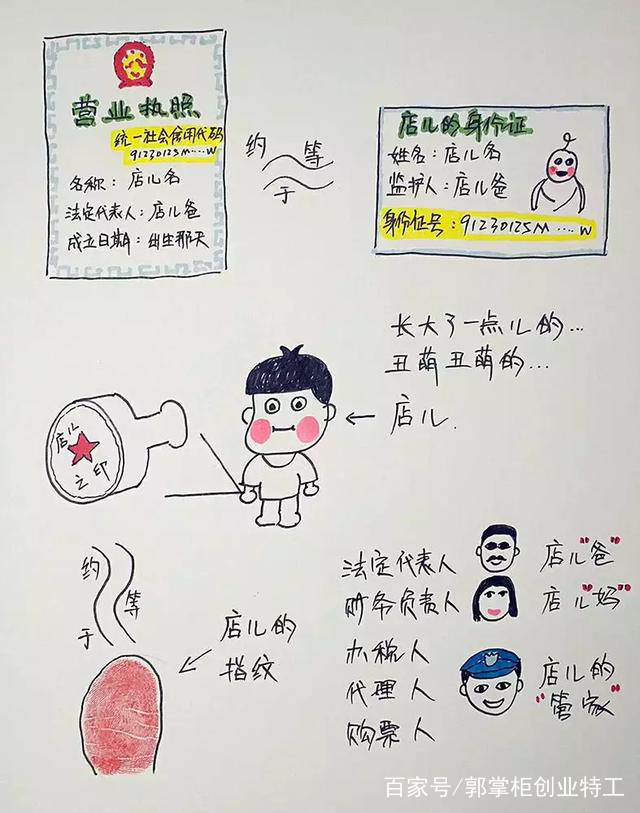 营业执照
统一社会信用代码
91230125M....W
名称：店儿名
法定代表人：店儿爸
成立日期：出生那天
约等于
店儿的身份证
姓名：店儿名
监护人：店儿爸
身份证号：91230125M....W
长大了一点儿的...
丑萌丑萌的...
店儿.
店儿
之印
约等于
店儿的
指纹
法定代表人
店儿"爸"
财务负责人
店儿"妈"
办税人
代理人
购票人
店儿的
"管家"
百家号/郭掌柜创业特工